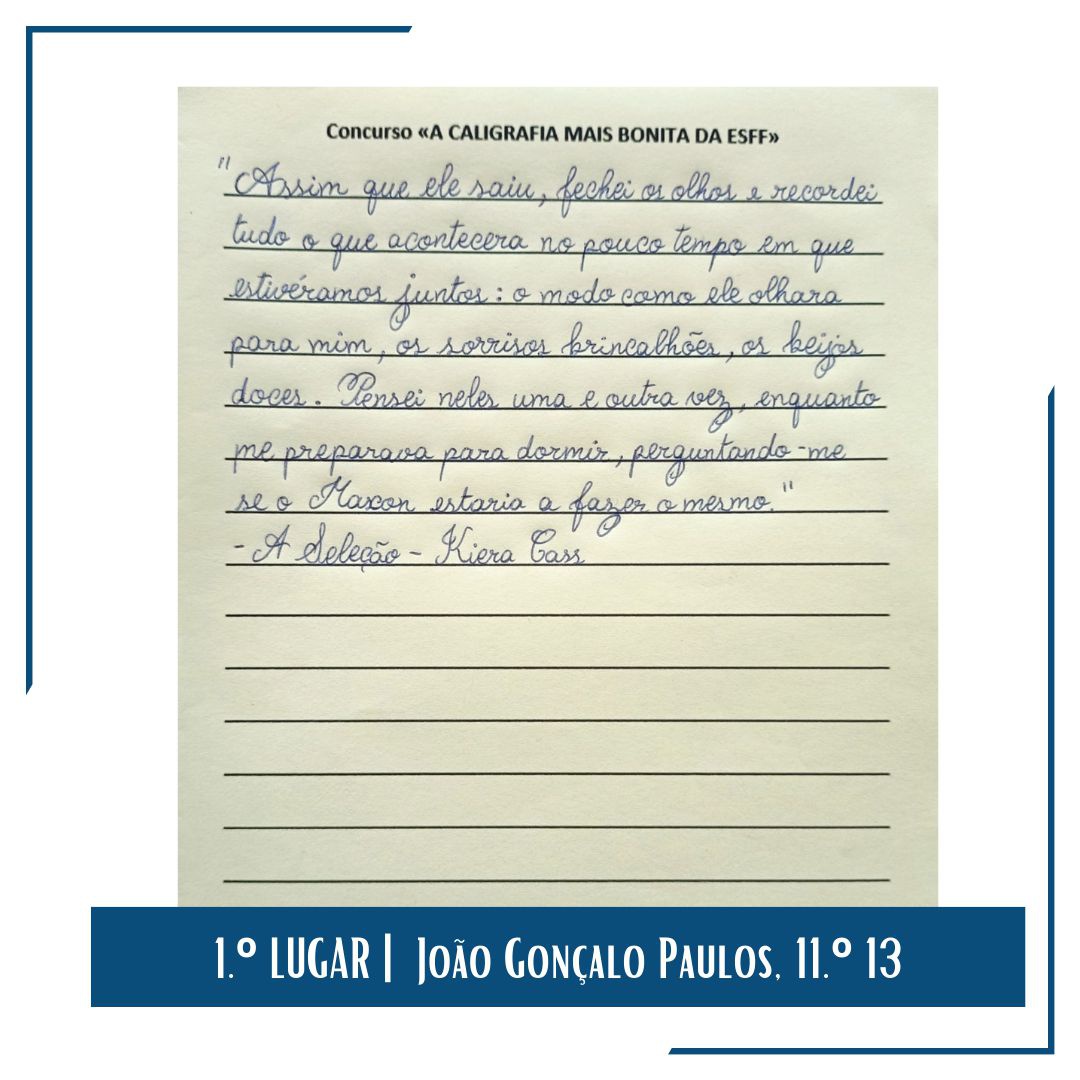 Concurso «A CALIGRAFIA MAIS BONITA DA ESFF»
"Assim que ele saiu, fechei os olhos e recordei
tudo o que acontecera no pouco tempo em que
estivéramos juntos: o modo como ele olhara
para mim, os sorrisos brincalhões, os beijos
doces. Pensei neles uma e outra vez, enquanto
me preparava para dormir, perguntando-me
se o Maxon estaria a fazer o mesmo."
- A Seleção - Kiera Cass
1.º LUGAR | João Gonçalo Paulos, 11.º 13